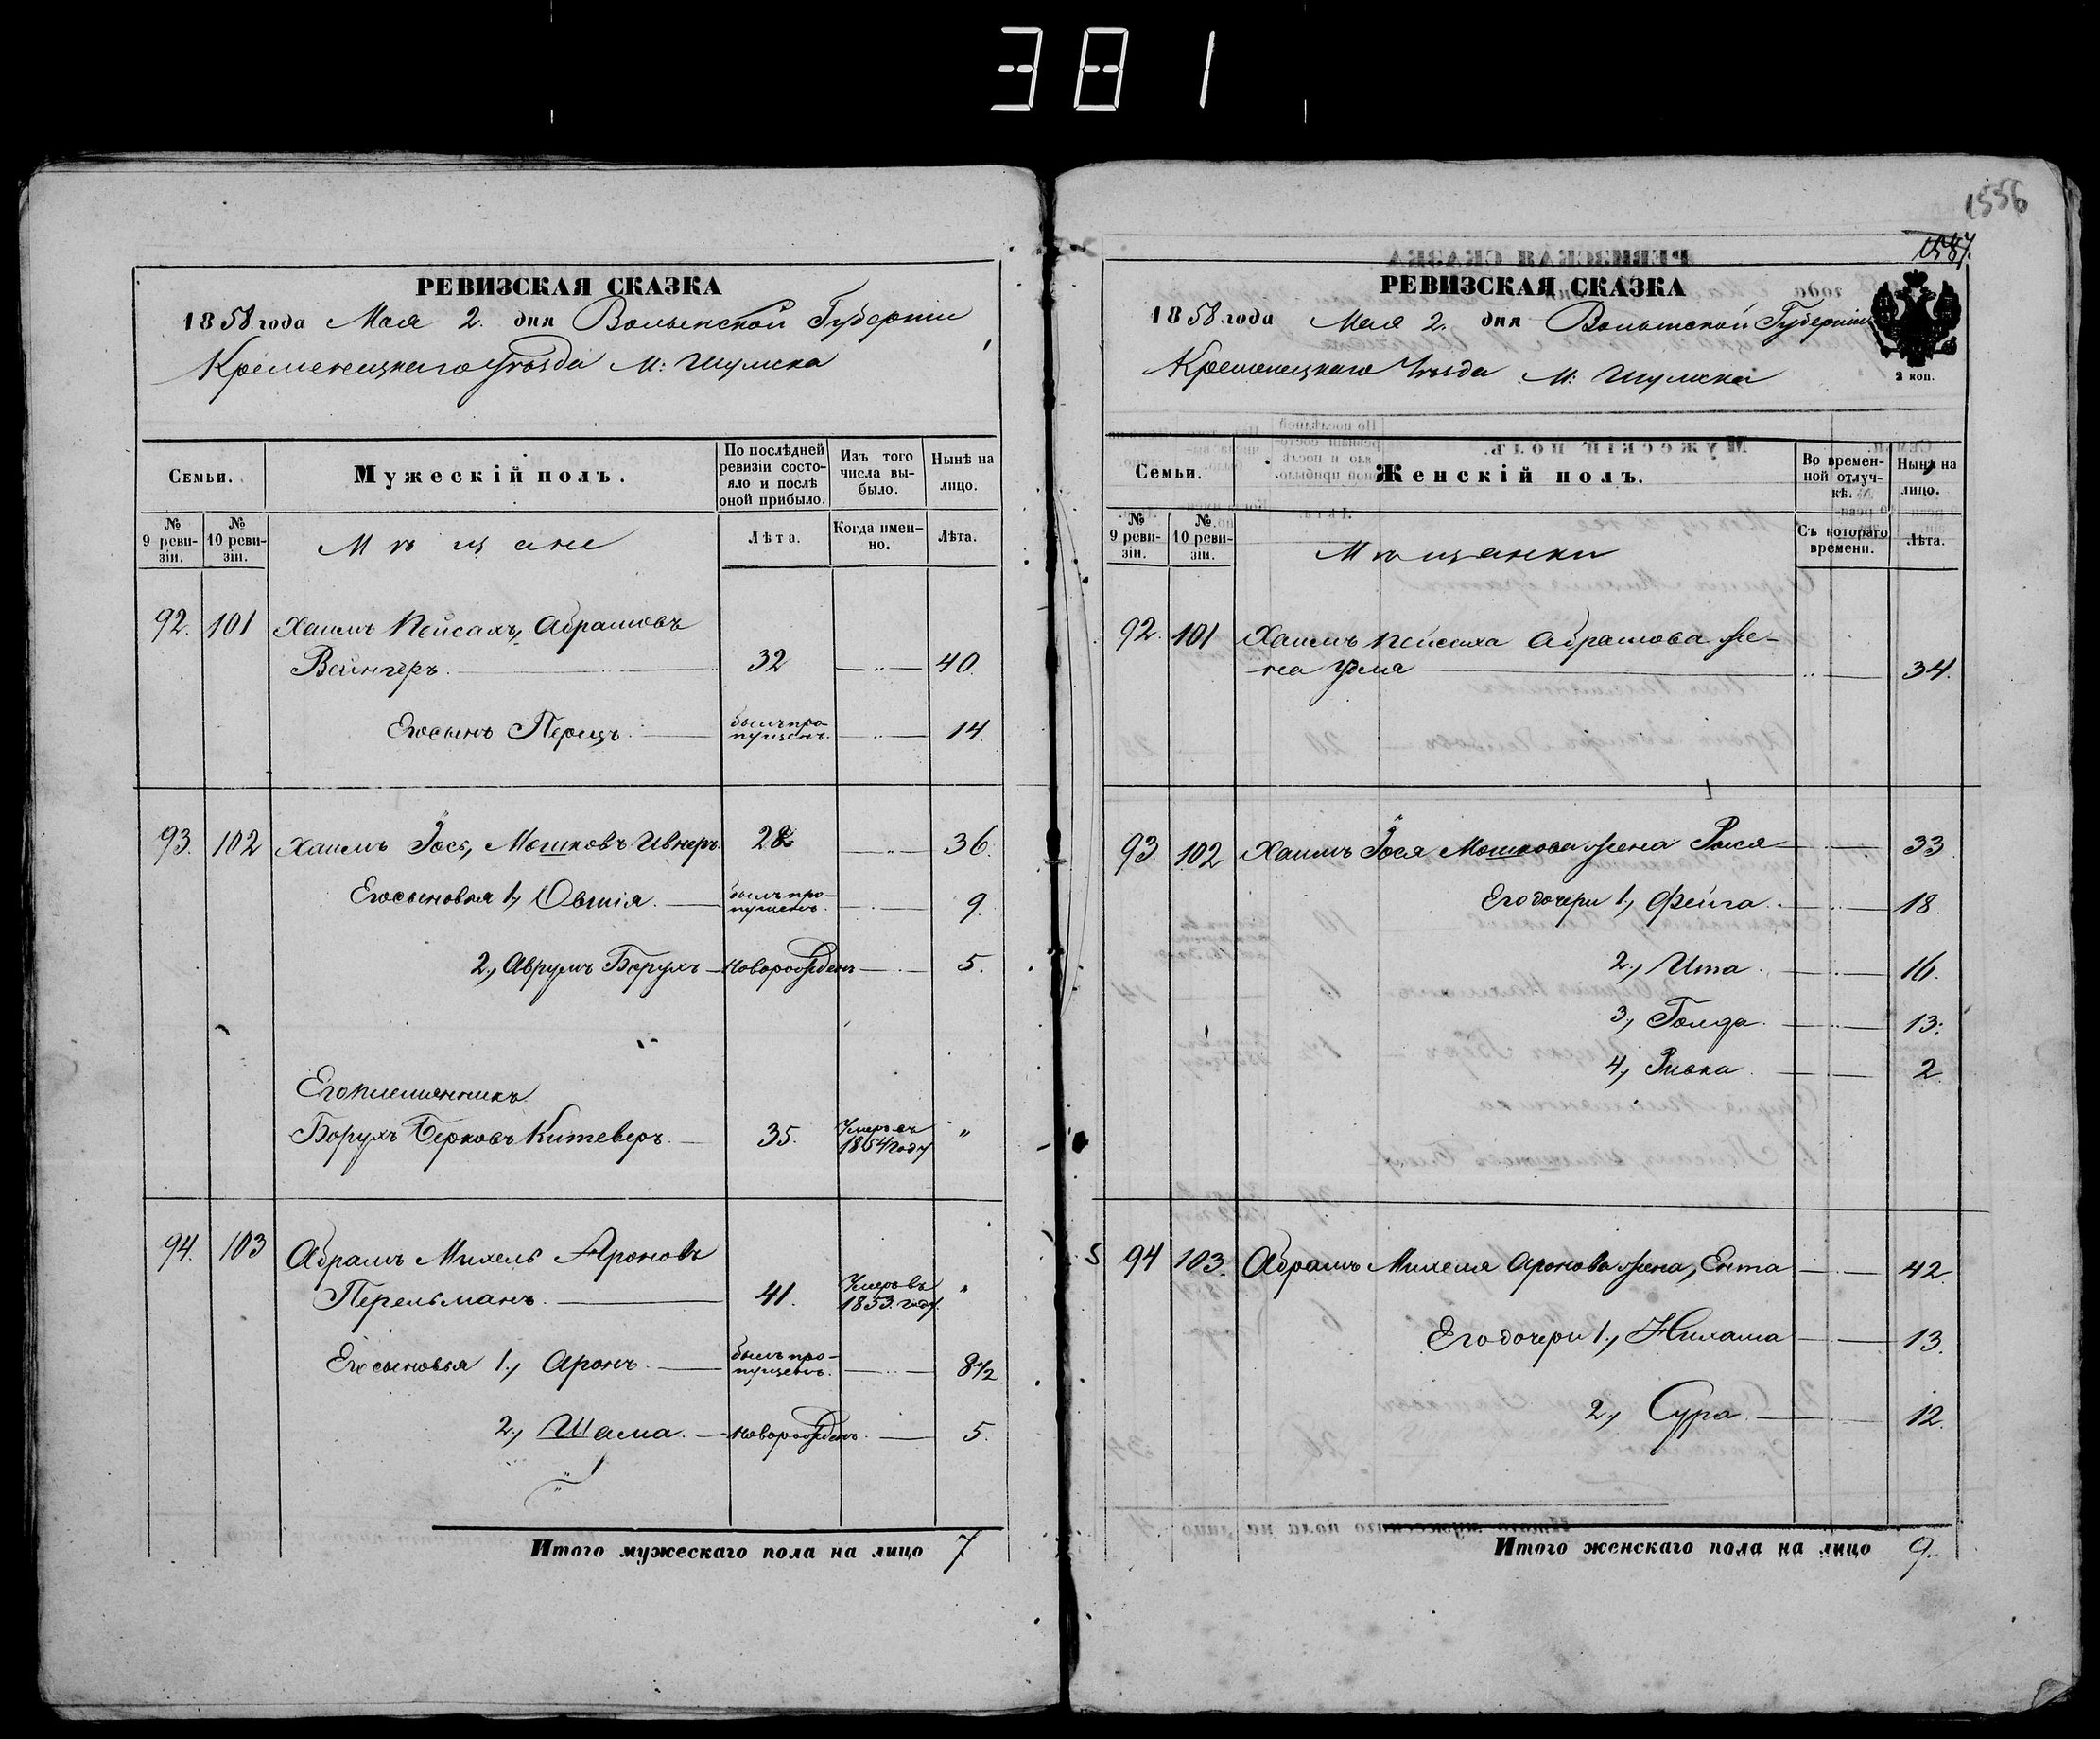 381
РЕВИЗСКАЯ СКАЗКА
1858. года Мая 2. дня Волынской Губернiи
Кременецкаго Уѣзда М: Шумска
Семьи.
Мужескiй полъ.
По послѣдней ревизiи состояло и послѣ оной прибыло.
Изъ того числа выбыло.
Нынѣ на лицо.
№ 9 ревизiи.
№ 10 ревизiи.
Мѣщане
Лѣта.
Когда именно.
Лѣта.
92. 101 Хаимъ Пейсахъ, Абрамовъ
Вейнгеръ. 32 40.
Его сынъ Перецъ. былъ пропущенъ. 14.
93. 102 Хаимъ Iось, Мошковъ Ивнеръ. 28 36.
Его сыновья 1., Овшiя. былъ пропущенъ. 9.
2., Аврумъ Борухъ новорожденъ 5.
Его племянникъ
Борухъ Берковъ Китеверъ. 35. Умеръ въ 1854 году "
94. 103 Абрамъ Михель Ароновъ
Перельманъ. 41. Умеръ въ 1853. году. "
Его сыновья 1., Аронъ. былъ пропущенъ. 8 1/2
2., Шама. новорожденъ. 5.
Итого мужескаго пола на лицо 7
1556
1587.
РЕВИЗСКАЯ СКАЗКА
1858. года Мая 2. дня Волынской Губернiи
Кременецкаго Уѣзда М: Шумска
2 коп.
Семьи.
Женскiй полъ.
Во временной отлучкѣ.
Нынѣ на лицо.
№ 9 ревизiи.
№ 10 ревизiи.
Мѣщанки
Съ котораго времени.
Лѣта.
92. 101 Хаимъ Пейсаха Абрамова же-
на Удля 34.
93. 102 Хаимъ Iося Мошкова жена Рыся 33
Его дочери 1., Фейга. 18.
2., Ита. 16.
3., Голда. 13.
4., Ривка. 2.
94 103. Абрамъ Михеля Аронова жена, Ента 42.
Его дочери 1., Нихама 13.
2., Сура. 12.
Итого женскаго пола на лицо 9.